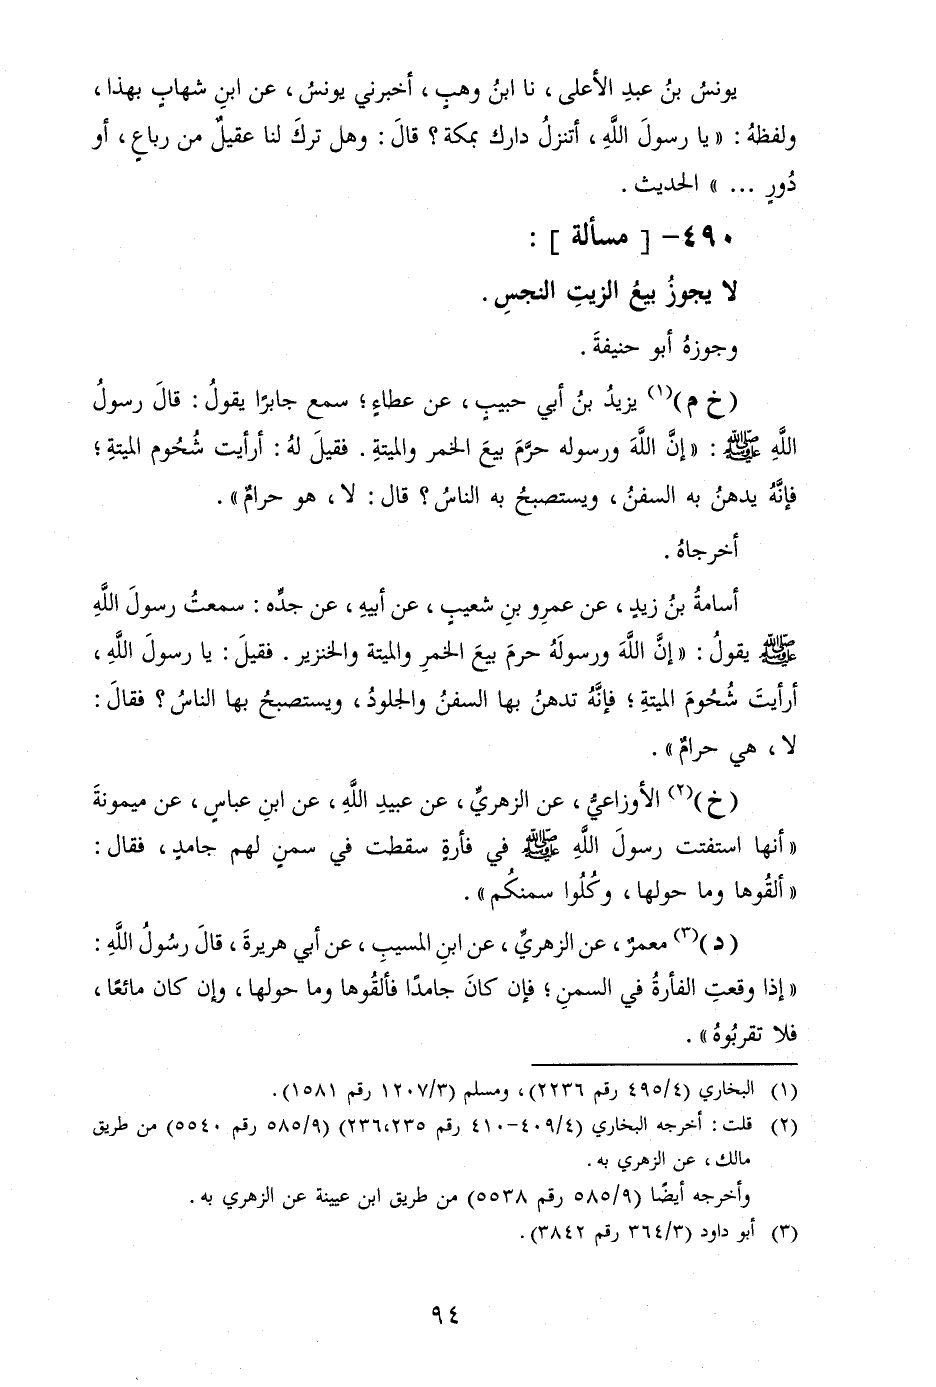 يونسُ بنُ عبدِ الأعلى ، نا ابنُ وهبٍ ، أخبرني يونسُ ، عن ابنِ شهابٍ بهذا ،
ولفظهُ : « يا رسولَ اللَّهِ ، أتنزلُ دارك بمكة ؟ قالَ : وهل تركَ لنا عقيلٌ من رباعٍ ، أو
دُورٍ ... » الحديث .
٤٩٠- [ مسألة ] :
لا يجوزُ بيعُ الزيتِ النجسِ .
وجوزهُ أبو حنيفةَ .
(خ م)(١) يزيدُ بنُ أبي حبيبٍ ، عن عطاءٍ ؛ سمع جابرًا يقولُ : قالَ رسولُ
اللَّهِ ﷺ : « إنَّ اللَّهَ ورسوله حرَّمَ بيعَ الخمر والميتةِ . فقيلَ لهُ : أرأيت شُحُوم الميتةِ ؛
فإنَّهُ يدهنُ به السفنُ ، ويستصبحُ به الناسُ ؟ قال : لا ، هو حرامٌ » .
أخرجاهُ .
أسامةُ بنُ زيدٍ ، عن عمرِو بنِ شعيبٍ ، عن أبيهِ ، عن جدِّه : سمعتُ رسولَ اللَّهِ
ﷺ يقولُ : « إنَّ اللَّهَ ورسولَهُ حرمَ بيعَ الخمرِ والميتة والخنزير . فقيلَ : يا رسولَ اللَّهِ ،
أرأيتَ شُحُومَ الميتةِ ؛ فإنَّهُ تدهنُ بها السفنُ والجلودُ ، ويستصبحُ بها الناسُ ؟ فقالَ :
لا ، هي حرامٌ » .
(خ)(٢) الأوزاعيُّ ، عن الزهريِّ ، عن عبيدِ اللَّهِ ، عن ابنِ عباسٍ ، عن ميمونةَ
« أنها استفتت رسولَ اللَّهِ ﷺ في فأرةٍ سقطت في سمنٍ لهم جامدٍ ، فقال :
« ألقُوها وما حولها ، وكُلُوا سمنكُم » .
(د)(٣) معمرٌ ، عن الزهريِّ ، عن ابنِ المسيبِ ، عن أبي هريرةَ ، قالَ رسُولُ اللَّهِ :
« إذا وقعتِ الفأرةُ في السمنِ ؛ فإن كانَ جامدًا فألقُوها وما حولها ، وإن كان مائعًا ،
فلا تقربُوهُ » .
(١) البخاري (٤/ ٤٩٥ رقم ٢٢٣٦) ، ومسلم (٣/ ١٢٠٧ رقم ١٥٨١) .
(٢) قلت : أخرجه البخاري (٤/ ٤٠٩-٤١٠ رقم ٢٣٥،٢٣٦) (٩/ ٥٨٥ رقم ٥٥٤٠) من طريق
مالك ، عن الزهري به .
وأخرجه أيضًا (٩/ ٥٨٥ رقم ٥٥٣٨) من طريق ابن عيينة عن الزهري به .
(٣) أبو داود (٣/ ٣٦٤ رقم ٣٨٤٢) .
٩٤